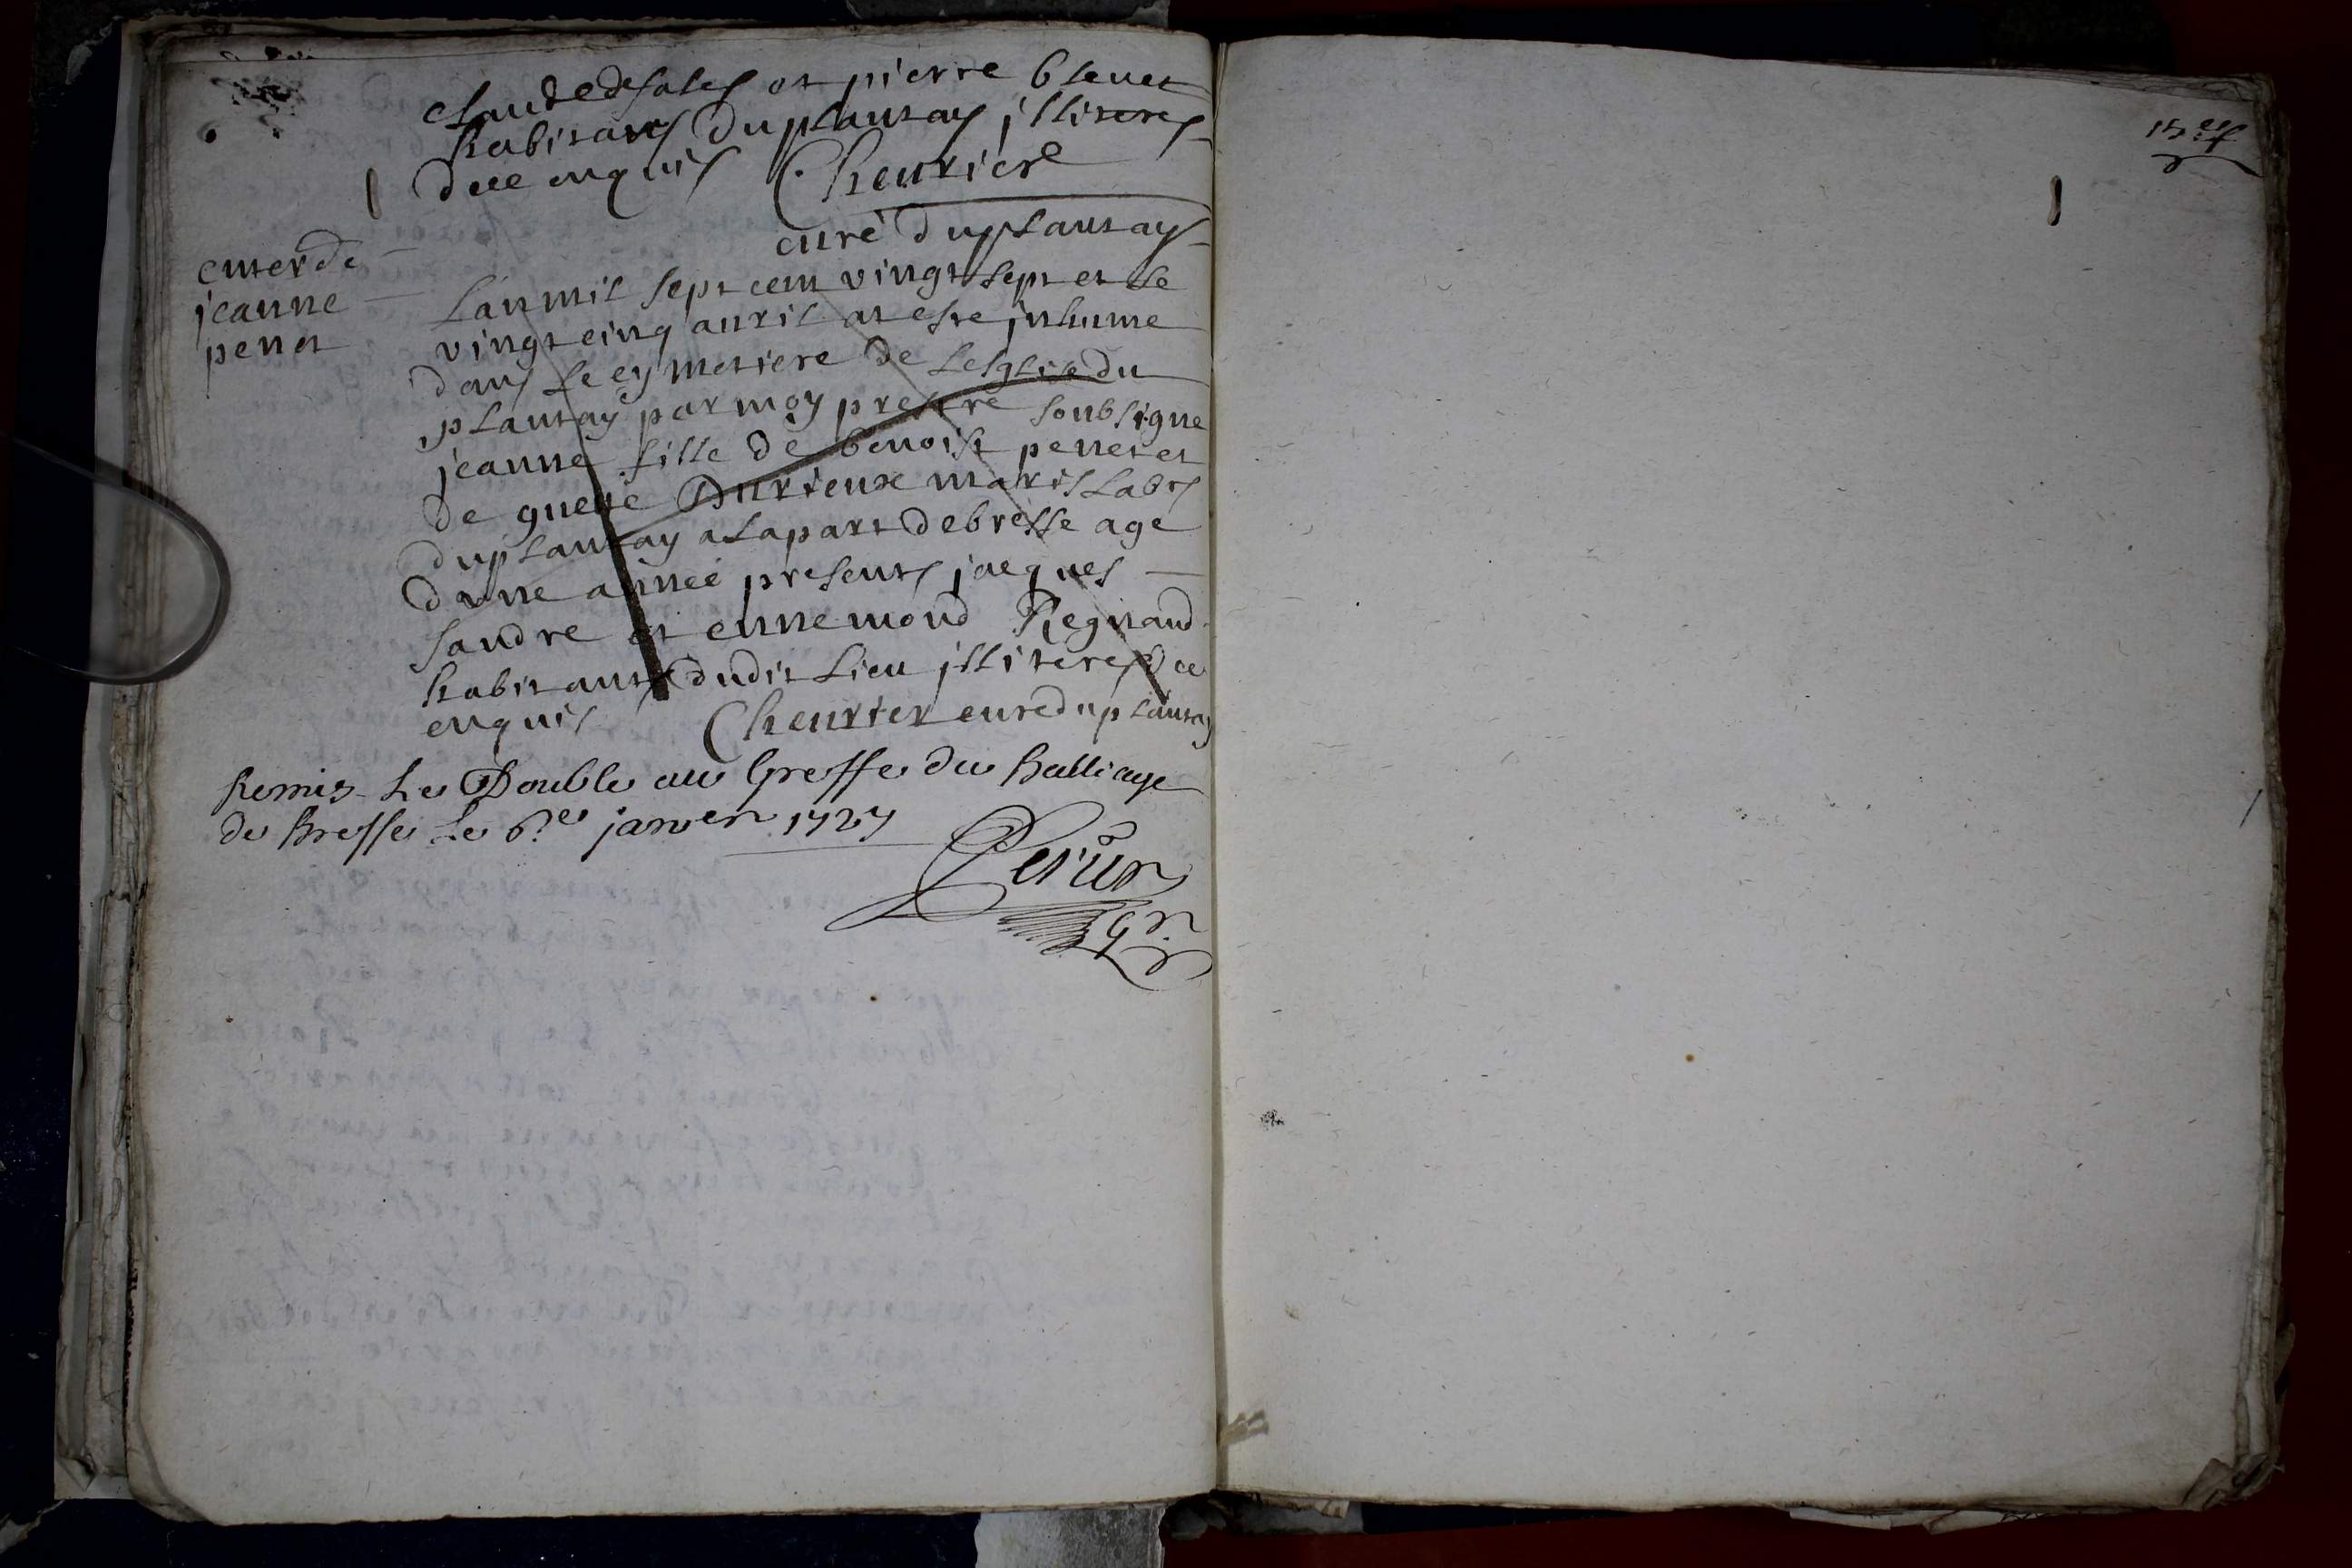 Claude desales et pierre blenet
habitans du plantay illiteres
de ce enquis Cheurier
curé du plantay
enter de
jeanne
penet
Lan mil sept cent vingt sept et le
vingt cinq auril at este inhume
dans le cymetiere de Leglise du
plantay par moy prestre soubsigne
jeanne fille de benoist penet et
de Durieux maries Labrs
du plantay a la part de bresse age
dune année presents jacques
sandre et ennemond Regnaud
habitants dudit Lieu illiteres de ce
enquis Cheurier curé du plantay
Remis Le Double au Greffe du Balliage
de Bresse Le 6.e janvier 1727
Perier
gr.
15.e